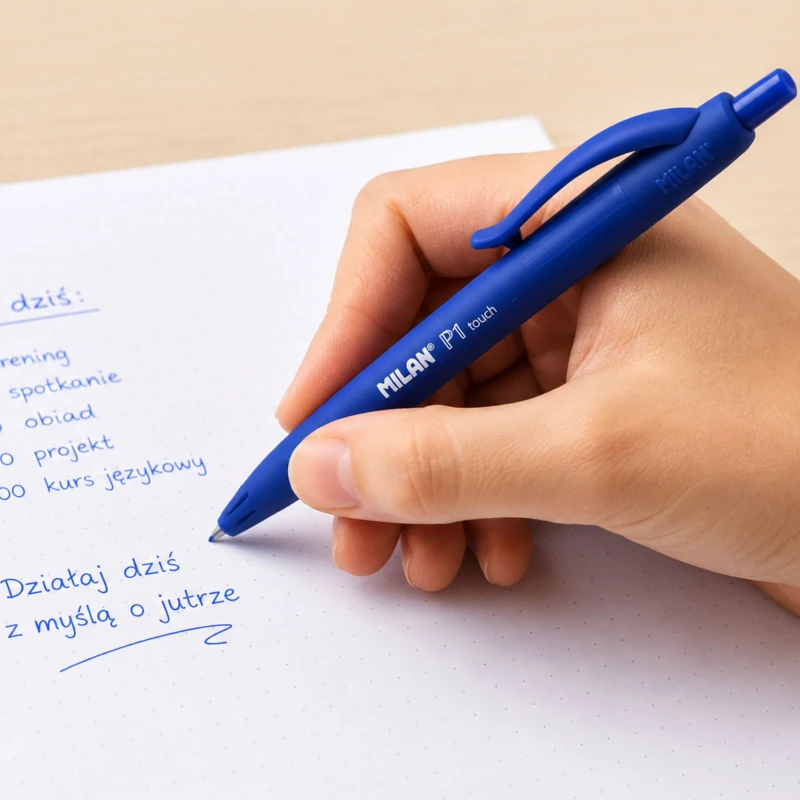 dziś:
rening
spotkanie
obiad
0 projekt
00 kurs językowy
Działaj dziś
z myślą o jutrze
MILAN® P1 touch
MILAN®